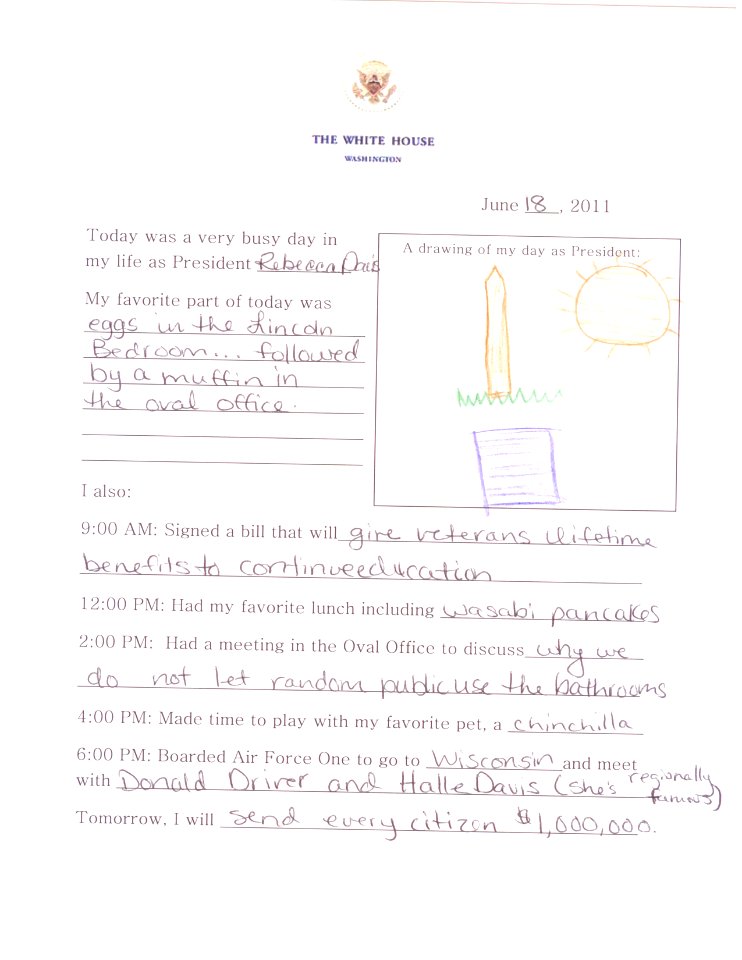 THE WHITE HOUSE
WASHINGTON
June 18, 2011
Today was a very busy day in
my life as President Rebecca Davis
My favorite part of today was
eggs in the Lincoln
Bedroom... followed
by a muffin in
the oval office.
A drawing of my day as President:
I also:
9:00 AM: Signed a bill that will give veterans lifetime
benefits to continue education
12:00 PM: Had my favorite lunch including wasabi pancakes
2:00 PM: Had a meeting in the Oval Office to discuss why we
do not let random public use the bathrooms
4:00 PM: Made time to play with my favorite pet, a chinchilla
6:00 PM: Boarded Air Force One to go to Wisconsin and meet
with Donald Driver and Halle Davis (she's regionally
famous)
Tomorrow, I will send every citizen $1,000,000.